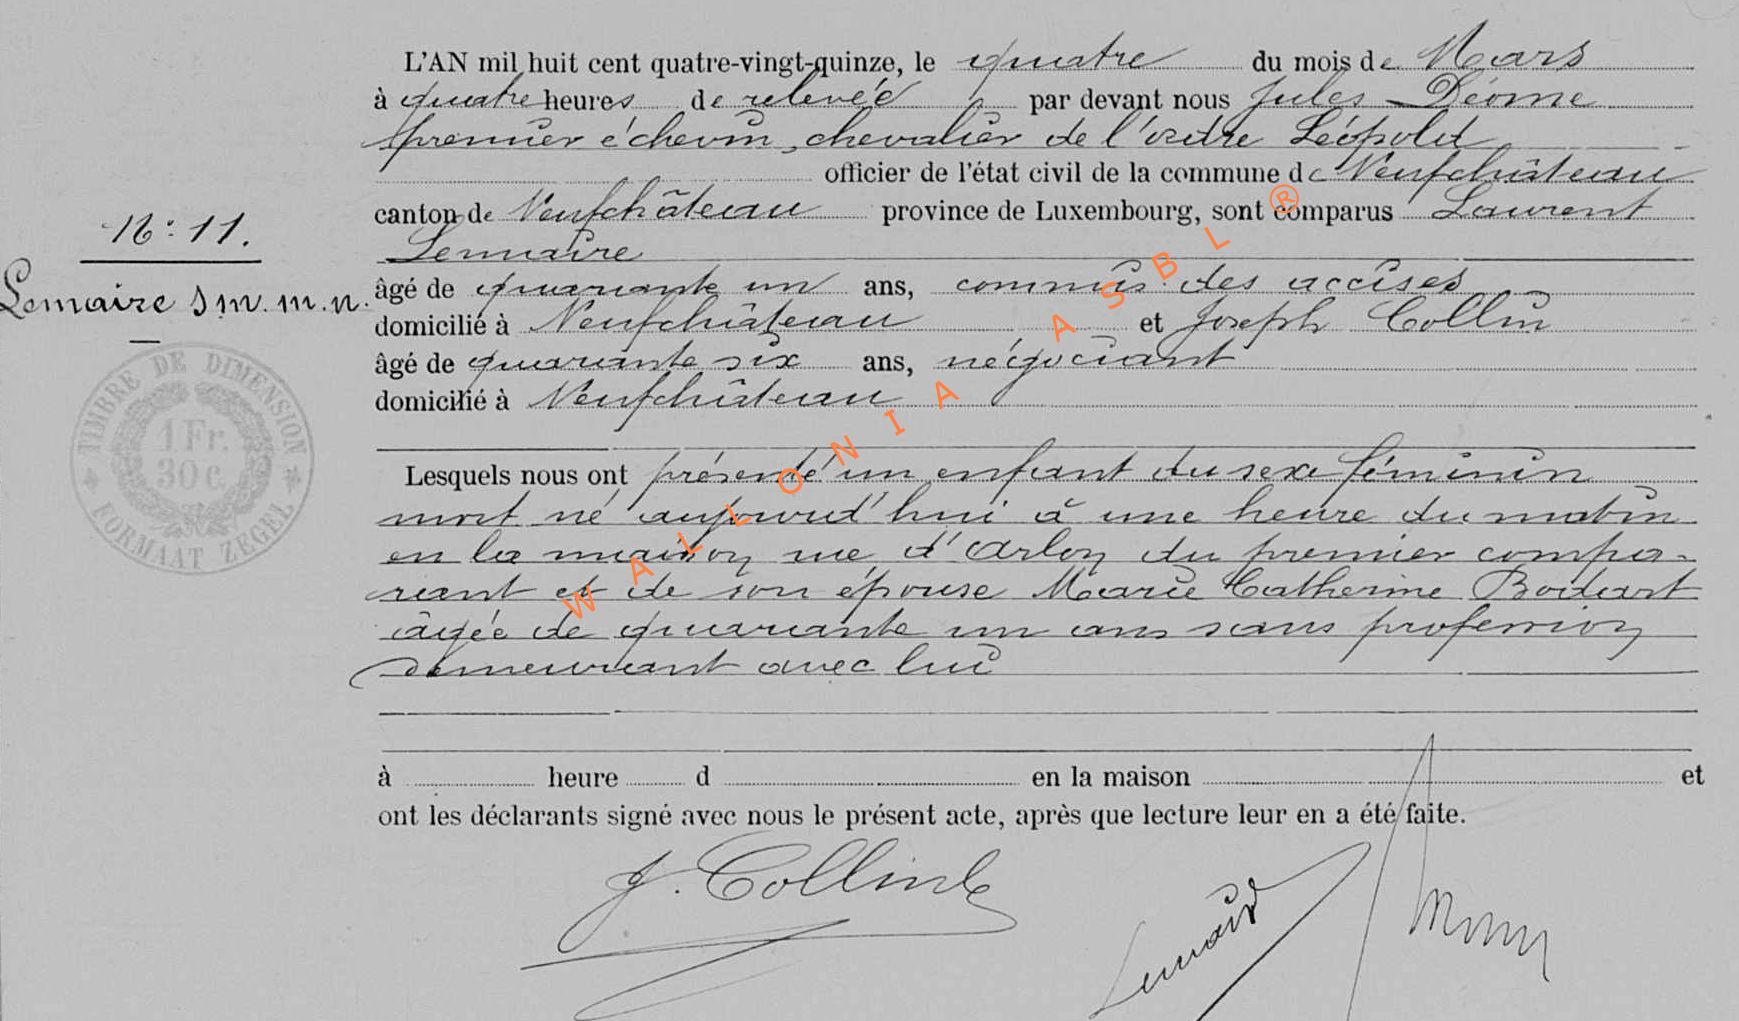 L'AN mil huit cent quatre-vingt-quinze, le quatre du mois de Mars
à quatre heures de relevée par devant nous Jules Déome
premier échevin, chevalier de l'ordre Léopold
officier de l'état civil de la commune de Neufchâteau
canton de Neufchâteau province de Luxembourg, sont comparus Laurent
Lemaire
N° 11.
Lemaire s m. m. n.
âgé de quarante un ans, commis des accises
domicilié à Neufchâteau et Joseph Collin
âgé de quarante six ans, négociant
domicilié à Neufchâteau
TIMBRE DE DIMENSION
1 Fr.
30 c.
FORMAAT ZEGEL
Lesquels nous ont présenté un enfant du sexe féminin
mort né aujourd'hui à une heure du matin
en la maison rue d'Arlon du premier compa-
rant et de son épouse Marie Catherine Bodart
âgée de quarante un ans sans profession
demeurant avec lui
à heure d en la maison et
ont les déclarants signé avec nous le présent acte, après que lecture leur en a été faite.
J. Collin
Lemaire
WALLONIA ASBL ®